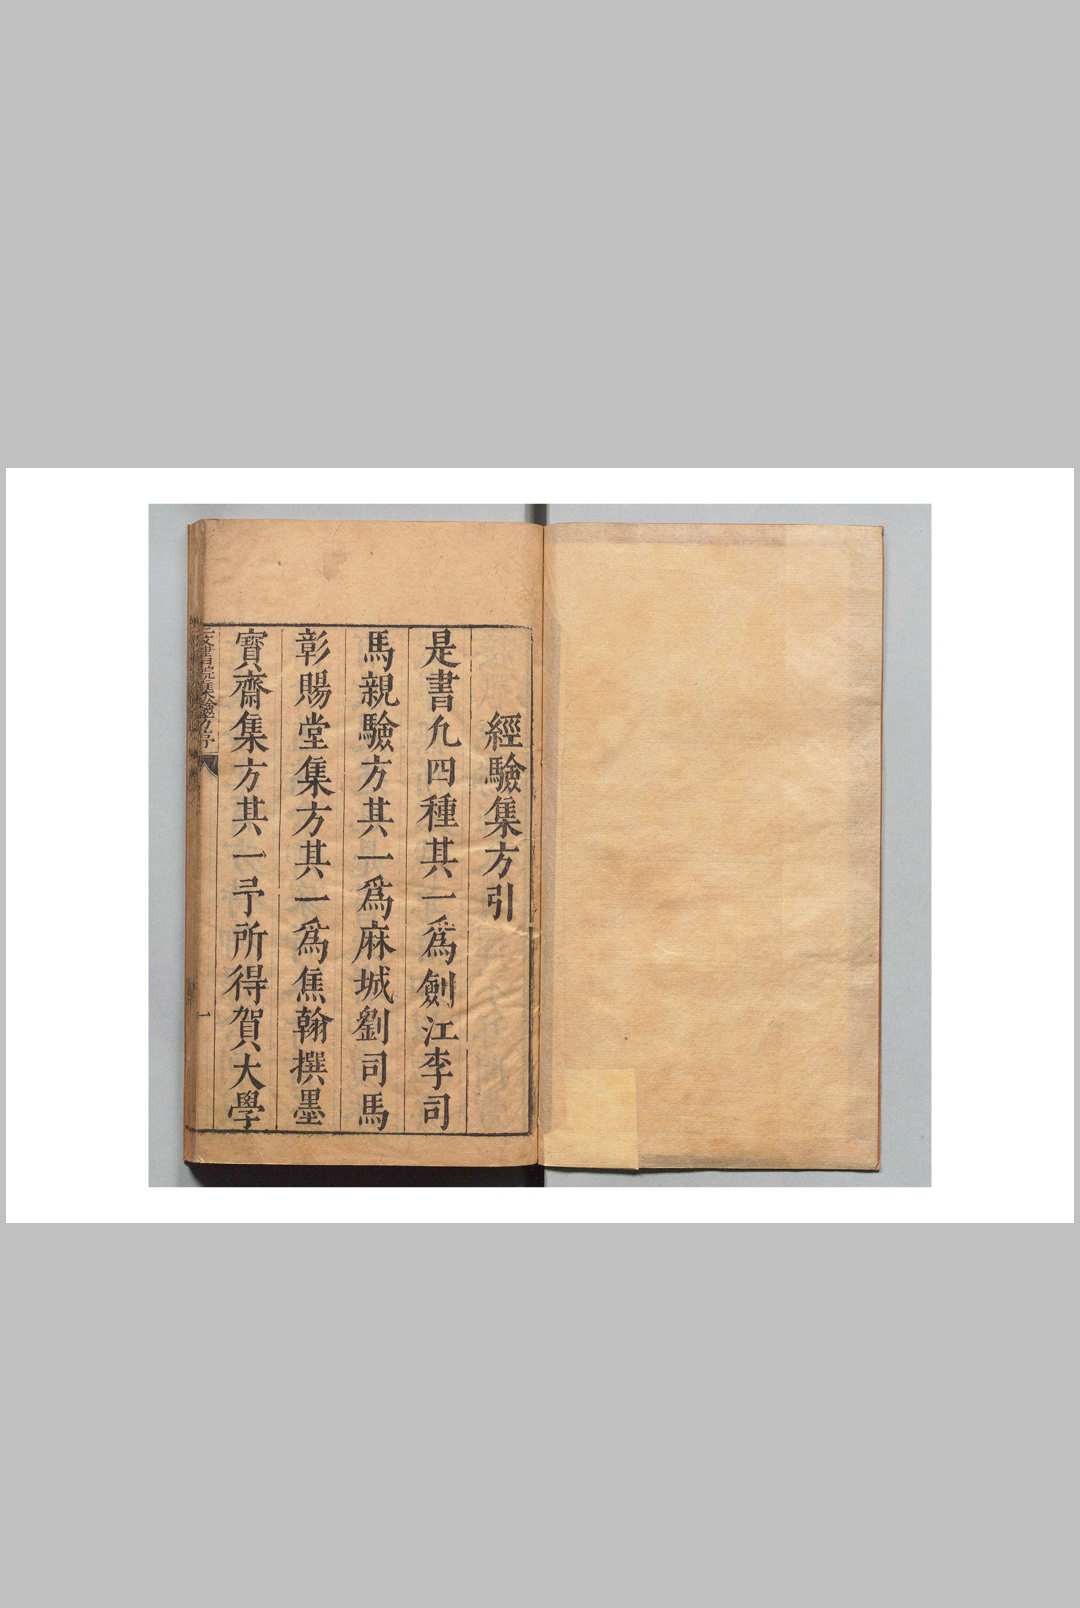 經驗集方引
是書凢四種其一爲劍江李司
馬親驗方其一爲麻城劉司馬
彰賜堂集方其一爲焦翰撰墨
寶齋集方其一予所得賀大學
一